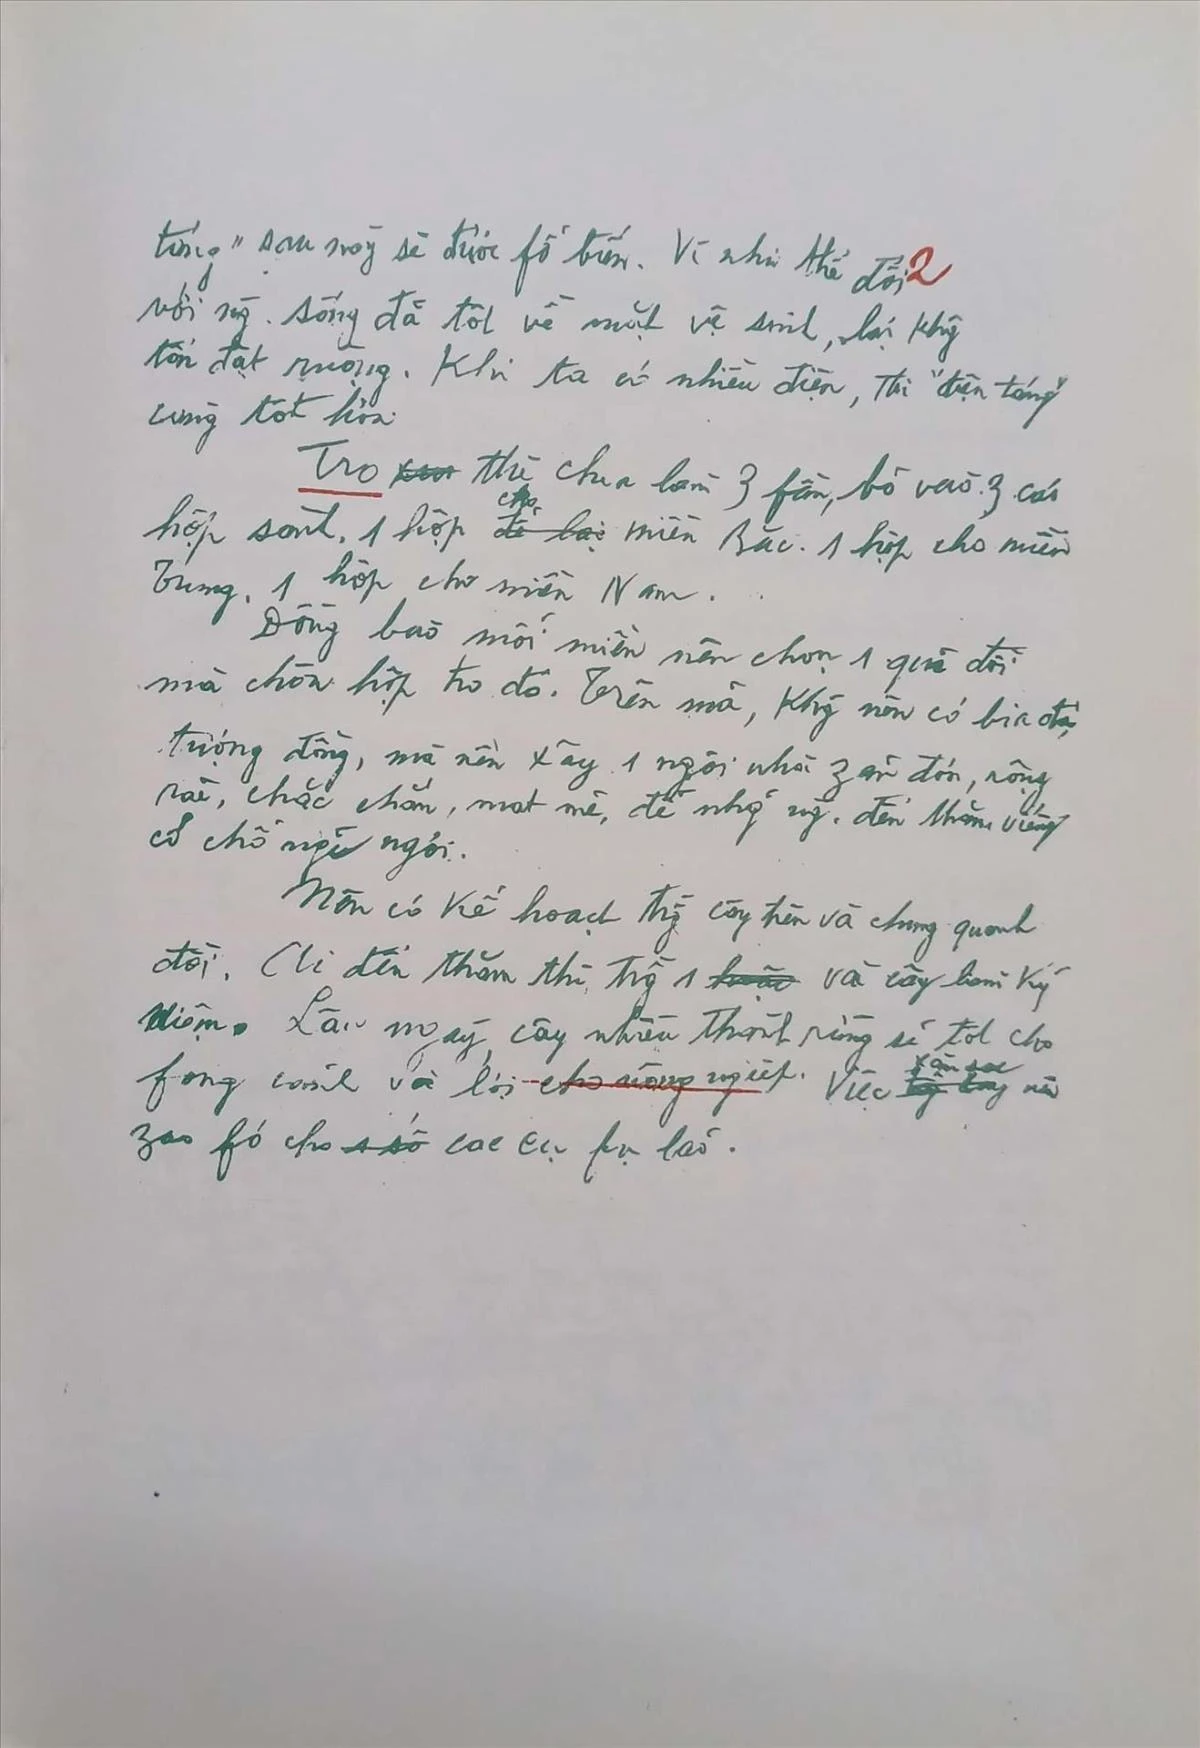 táng" sau này sẽ được fổ biến. Vì như thế đối 2
với ng̀. sống đã tốt về mặt vệ sinh, lại khg̀
tốn đất ruộng. Khi ta có nhiều điện, thì "điện táng"
càng tốt hơn.
Tro xươ thì chia làm 3 fần, bỏ vào 3 cái
hộp sành. 1 hộp để lại cho miền Bắc. 1 hộp cho miền
Trung. 1 hộp cho miền Nam.
Đồng bào mỗi miền nên chọn 1 quả đồi
mà chôn hộp tro đó. Trên mả, khg̀ nên có bia đá,
tượng đồng, mà nên xây 1 ngôi nhà zản đơn, rộng
rãi, chắc chắn, mát mẻ, để nhg̃ ng̀. đến thăm viếng
có chỗ nghỉ ngơi.
Nên có kế hoạch trg̀ cây trên và chung quanh
đồi. Ai đến thăm thì trg̀ 1 hoặc vài cây làm kỷ
niệm. Lâu ngày, cây nhiều thành rừng sẽ tốt cho
fong cảnh và lợi cho nông nghiệp. Việc trg̀ cây săn sóc nên
zao fó cho 1 số các cụ fụ lão.